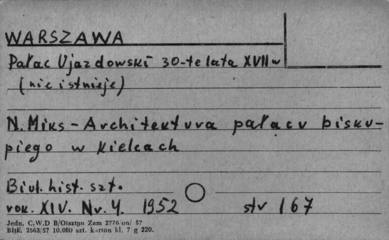 WARSZAWA
Pałac Ujazdowski 30-te lata XVII w
(nie istnieje)
N. Miks - Architektura pałacu bisku-
piego w Kielcach
Biul. hist. szt.
rok. XIV. Nr. 4. 1952 str 167
Jedn. C.W.D B/Olsztyn Zam 2776 on/ 57
Błsk. 2563/57 10.000 szt. karton kl. 7 g 220.